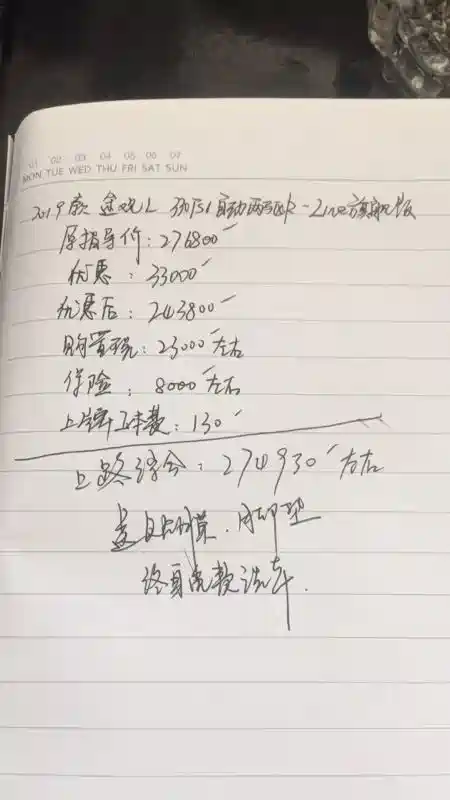 01 02 03 04 05 06 07
MON TUE WED THU FRI SAT SUN
2019款 途观L 330TSI 自动两驱 旗舰版
原指导价：276800
优惠：33000
优惠后：243800
购置税：23000左右
保险：8000左右
上牌工本费：130
上路综合：274930左右
送 脚垫
终身免费洗车.